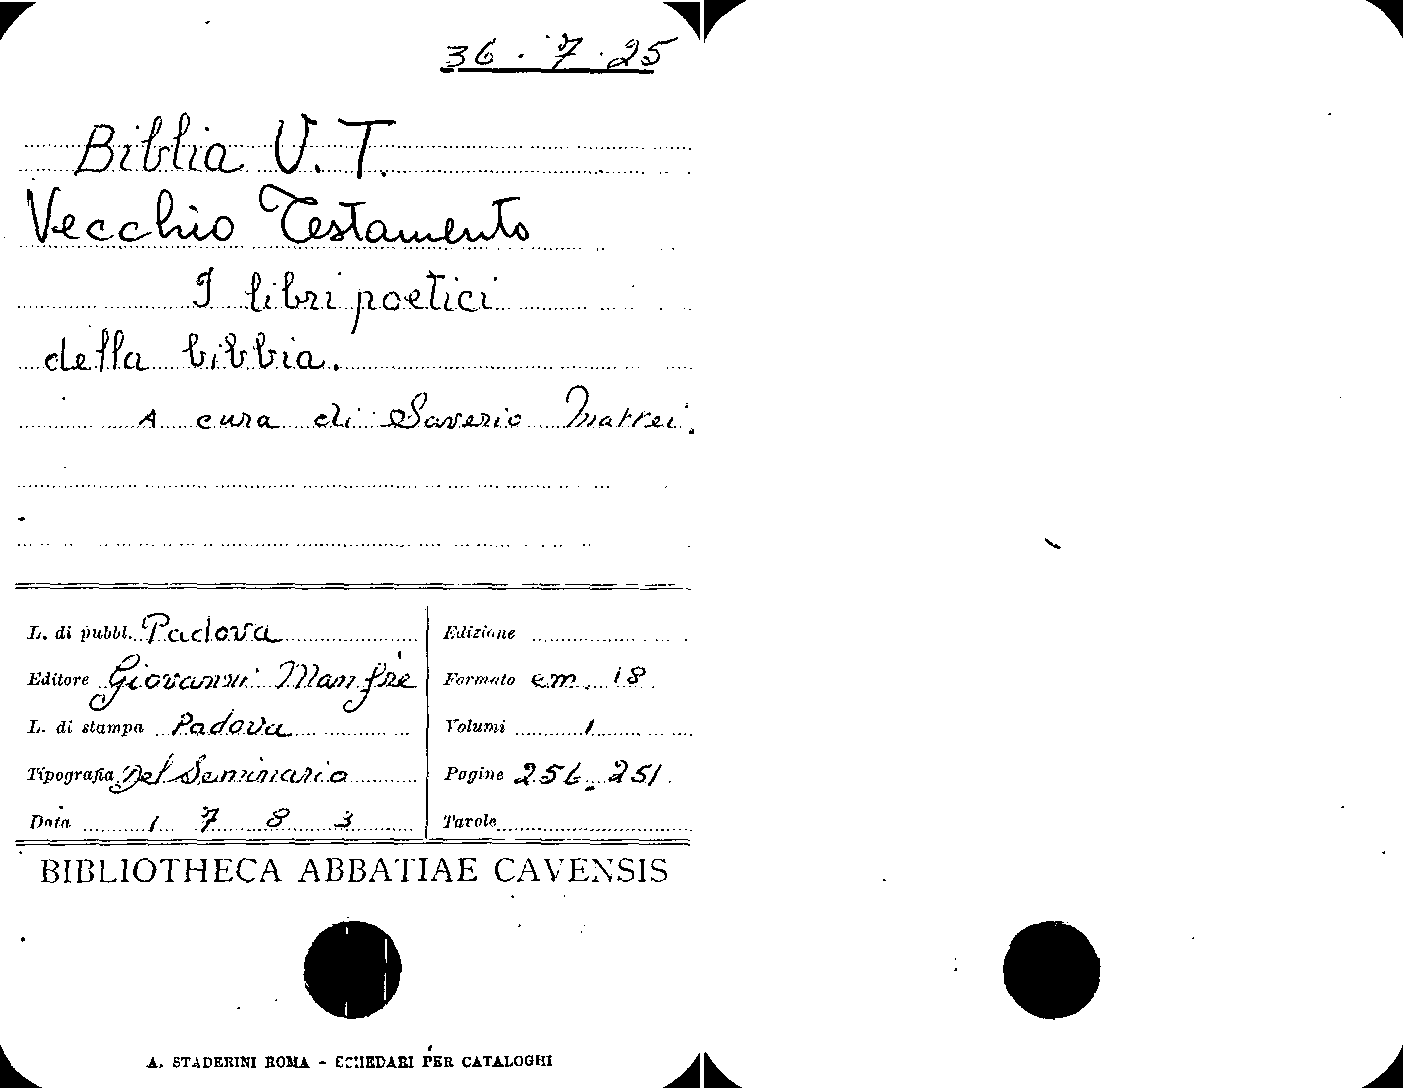 36.7.25
Biblia V.T.
Vecchio Testamento
I libri poetici
della bibbia.
A cura di Saverio Mattei.
L. di pubbl. Padova
Editore Giovanni Manfrè
L. di stampa Padova
Tipografia Del Seminario
Data 1783
Edizione
Formato cm. 18
Volumi 1
Pagine 256-251
Tavole
BIBLIOTHECA ABBATIAE CAVENSIS
A. STADERINI ROMA - SCHEDARI PER CATALOGHI